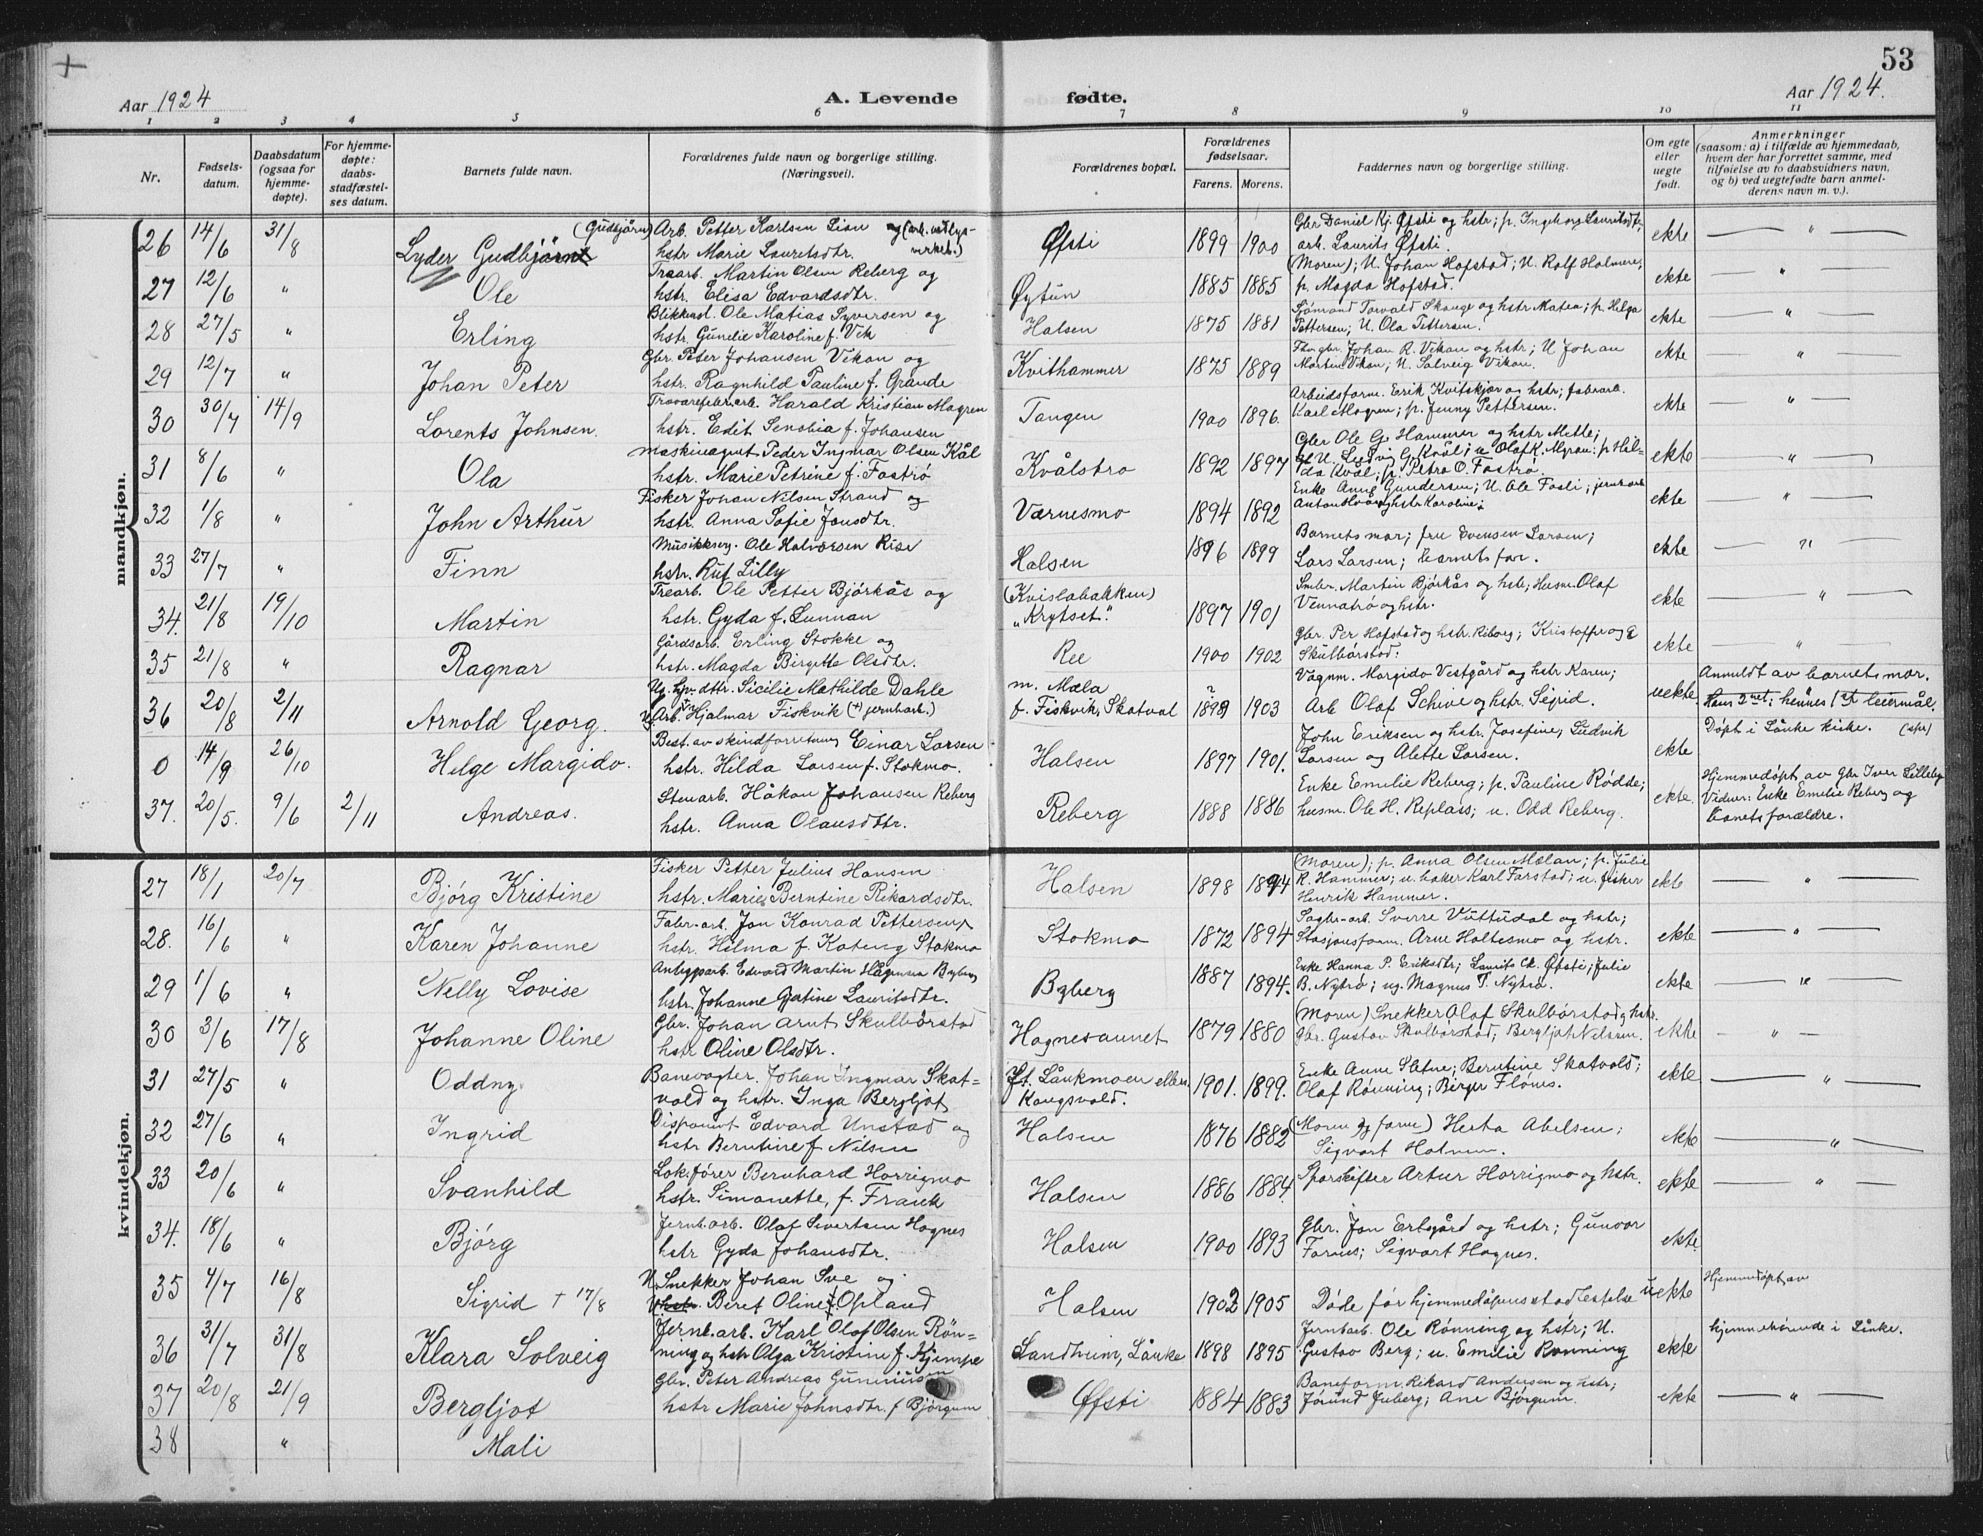 53
Aar 1924 A. Levende fødte. Aar 1924.
1 2 3 4 5 6 7 8 9 10 11
Nr. Fødsels-datum. Daabsdatum (ogsaa for hjemme-døpte). For hjemme-døpte: daabs-stadfæstel-ses datum. Barnets fulde navn. Forældrenes fulde navn og borgerlige stilling. (Næringsvei). Forældrenes bopæl. Forældrenes fødselsaar. Farens. Morens. Faddernes navn og borgerlige stilling. Om egte eller uegte født. Anmerkninger (saasom: a) i tilfælde av hjemmedaab, hvem der har forrettet samme, med tilføielse av to daabsvidners navn, og b) ved uegtefødte barn anmel-derens navn m. v.).
mandkjøn.
26 14/6 31/8 Lyder Gudbjørnt (Gudbjørn) Arb. Petter Karlsen Lian og
hstr. Marie Lauritsdtr. Øfsti 1899 1900 Gbr Daniel Kj. Øfsti og hstr; p. Ingeborg Lauritsdtr,
arb. Laurits Øfsti. ekte — " —
27 12/6 " Ole Traarb. Martin Olsen Reberg og
hstr. Elisa Edvardsdtr. Øytun 1885 1885 (Moren); U. Johan Hofstad; U. Rolf Holmere;
p. Magda Hofstad. ekte — " —
28 27/5 " Erling Blikkensl. Ole Matias Syversen og
hstr. Gunelie Karoline f. Vik Halsen 1875 1881 Sjømand Torvald Skauge og hstr Matea; p. Helga
Pettersen; U. Ola Pettersen. ekte — " —
29 12/7 " Johan Peter Gbr. Peter Johansen Vikan og
hstr. Ragnhild Pauline f. Grande Kvithammer 1875 1889 Johan R. Vikan og hstr; U Johan
Morten Vikan; U. Solveig Vikan. ekte — " —
30 30/7 14/9 Lorents Johnsen. Harald Kristian Mogren
hstr. Edit Senobia f. Johansen Tangen 1900 1896. Arbeidsform. Erik Kvitskjør og hstr; fabrarb.
Karl Mogren; p. Jenny Pettersen. ekte — " —
31 8/6 " Ola Maskinagent Peder Ingmar Olsen Kål
hstr. Marie Petrine f. Fostrø Kvålstro 1892 1897 Gbr Ole G. Hammer og hstr Mette;
p. Petra O. Fostrø. ekte — " —
32 1/8 " John Arthur Fisker Johan Nilsen Strand og
hstr. Anna Sofie Jonsdtr. Værnesmo 1894 1892 Enke Anne Gundersen; U. Ole Fosli;
ekte — " —
33 27/7 " Finn Musikkserg. Ole Halvorsen Rise
hstr. Rut Lilly Halsen 1896 1899 Barnets mor; fru Evensen Larsen;
Lars Larsen; Barnets far. ekte — " —
34. 21/8 19/10 Martin Trearb. Ole Petter Bjørkås og
hstr. Gyda f. Lunnan (Kvislabakken)
„Krytset." 1897 1901 Martin Bjørkås og hstr; Husm. Olaf
Vennatrø og hstr. ekte — " —
35 21/8 " Ragnar Gårdsarb. Erling Stokke og
hstr. Magda Birgitte Olsdtr. Ree 1900 1902 Gbr. Per Hofstad og hstr. Kristoffer og
Skulbørstad: ekte — " —
36 20/8 2/11 Arnold Georg. Ug. hjv. dttr. Sicilie Mathilde Dahle
Arb. Hjalmar Fiskvik (jernbarb.) m. Mæla
f. Fiskvik, Skatval 1898 ? 1903 Vognm. Margido Vestgård og hstr Karen;
Arb Olaf Schive og hstr Sigrid. uekte Anmeldt av barnets mor.
Hans 2net; hennes 1st leiermål.
0 14/9 26/10 Helge Margido. Best. av skindforretning Einar Larsen
hstr. Hilda Larsen f. Stokmo. Halsen 1897 1901. John Eriksen og hstr. Josefine; Ludvik
Larsen og Alette Larsen. ekte Døpt i Lånke kirke.
37. 20/5. 9/6 2/11 Andreas. Stenarb. Håkon Johansen Reberg
hstr. Anna Olausdtr. Reberg 1888 1886 Enke Emilie Reberg; p. Pauline Rødde;
husm. Ole H. Replass; u. Odd Reberg. ekte. Hjemmedøpt av Gbr Iver Lilleby
Vidner: Enke Emilie Reberg og
barnets forældre.
kvindekjøn.
27 18/1 20/7 Bjørg Kristine Fisker Petter Julius Hansen
hstr. Marie Berntine Rikardsdtr. Halsen 1898 1894 (Moren); p. Anna Olsen Mælan; p. Julie
R. Hammer; u. baker Karl Farstad; u. fisker
Henrik Hammer. ekte — " —
28. 16/6 " Karen Johanne Fabr-arb. Jon Konrad Pettersen
hstr. Hilma f. Kateng Stokmo Stokmo 1872 1894 Sagbr-arb. Sverre Vuttudal og hstr;
Stasjonsform. Arne Holtesmo og hstr. ekte — " —
29 1/6 " Nelly Lovise Anleggsarb. Edvard Martin Hågensen Byberg
hstr. Johanne Gjatine Lauritsdtr. Byberg 1887 1894. Enke Hanna P. Eriksdtr; Laurits Ch. Øfsti; Julie
B. Nytrø; ug. Magnus T. Nytrø. ekte — " —
30 3/6 17/8 Johanne Oline Gbr. Johan Arnt Skulbørstad
hstr Oline Olsdtr. Hognesaunet 1879 1880 (Moren) Snekker Olaf Skulbørstad og hstr.
Gbr. Gustav Skulbørstad; Bergljot Nilsen. ekte — " —
31 27/5 " Oddny. Banevogter. Johan Ingmar Skat=
vold og hstr. Inga Bergljot Lånkmoen eller
Kongsvold. 1901. 1899. Enke Anne Sætne; Berntine Skatvold;
Olaf Rønning; Birger Flønes. ekte — " —
32 27/6 " Ingrid Disponent Edvard Unstad og
hstr Berntine f Nilsen Halsen 1876 1882 (Moren og faren) Herta Abelsen;
Sigvart Holmen. ekte — " —
33 20/6 " Svanhild Lok.fører Bernhard Horrigmo
hstr. Simonette, f. Franck Halsen 1886 1884. Sporskifter Artur Horrigmo og hstr. ekte — " —
34. 18/6 " Bjørg Jernb.arb. Olaf Sivertsen Hognes
hstr Gyda Johansdtr. Halsen 1900 1893 Gbr. Jon Ertsgård og hstr; Gunvor
Farnes; Sigvart Hognes. ekte.
35 4/7 16/8 Sigrid † 17/8 U. Snekker Johan Sve og
hstr. Beret Oline f Opland Halsen 1902 1905 Døde før hjemmedåpens stadfestelse uekte Hjemmedøpt av
36 31/7 31/8 Klara Solveig Jernb.arb. Karl Olaf Olsen Røn=
ning og hstr Olga Kristine f. Kjempe Sandheim, Lånke 1898 1895 Jernbarb. Ole Rønning og hstr; U.
Gustav Berg; u. Emilie Rønning ekte hjemmehørende i Lånke.
37 20/8 21/9 Bergljot Gbr. Peter Andreas Gunnnusen
hstr Marie Johnsdtr. f Bjørgum Øfsti 1884 1883 Baneform. Rikard Andersen og hstr;
Jørund Juberg; Ane Bjørgum. ekte — " —
38 " Mali